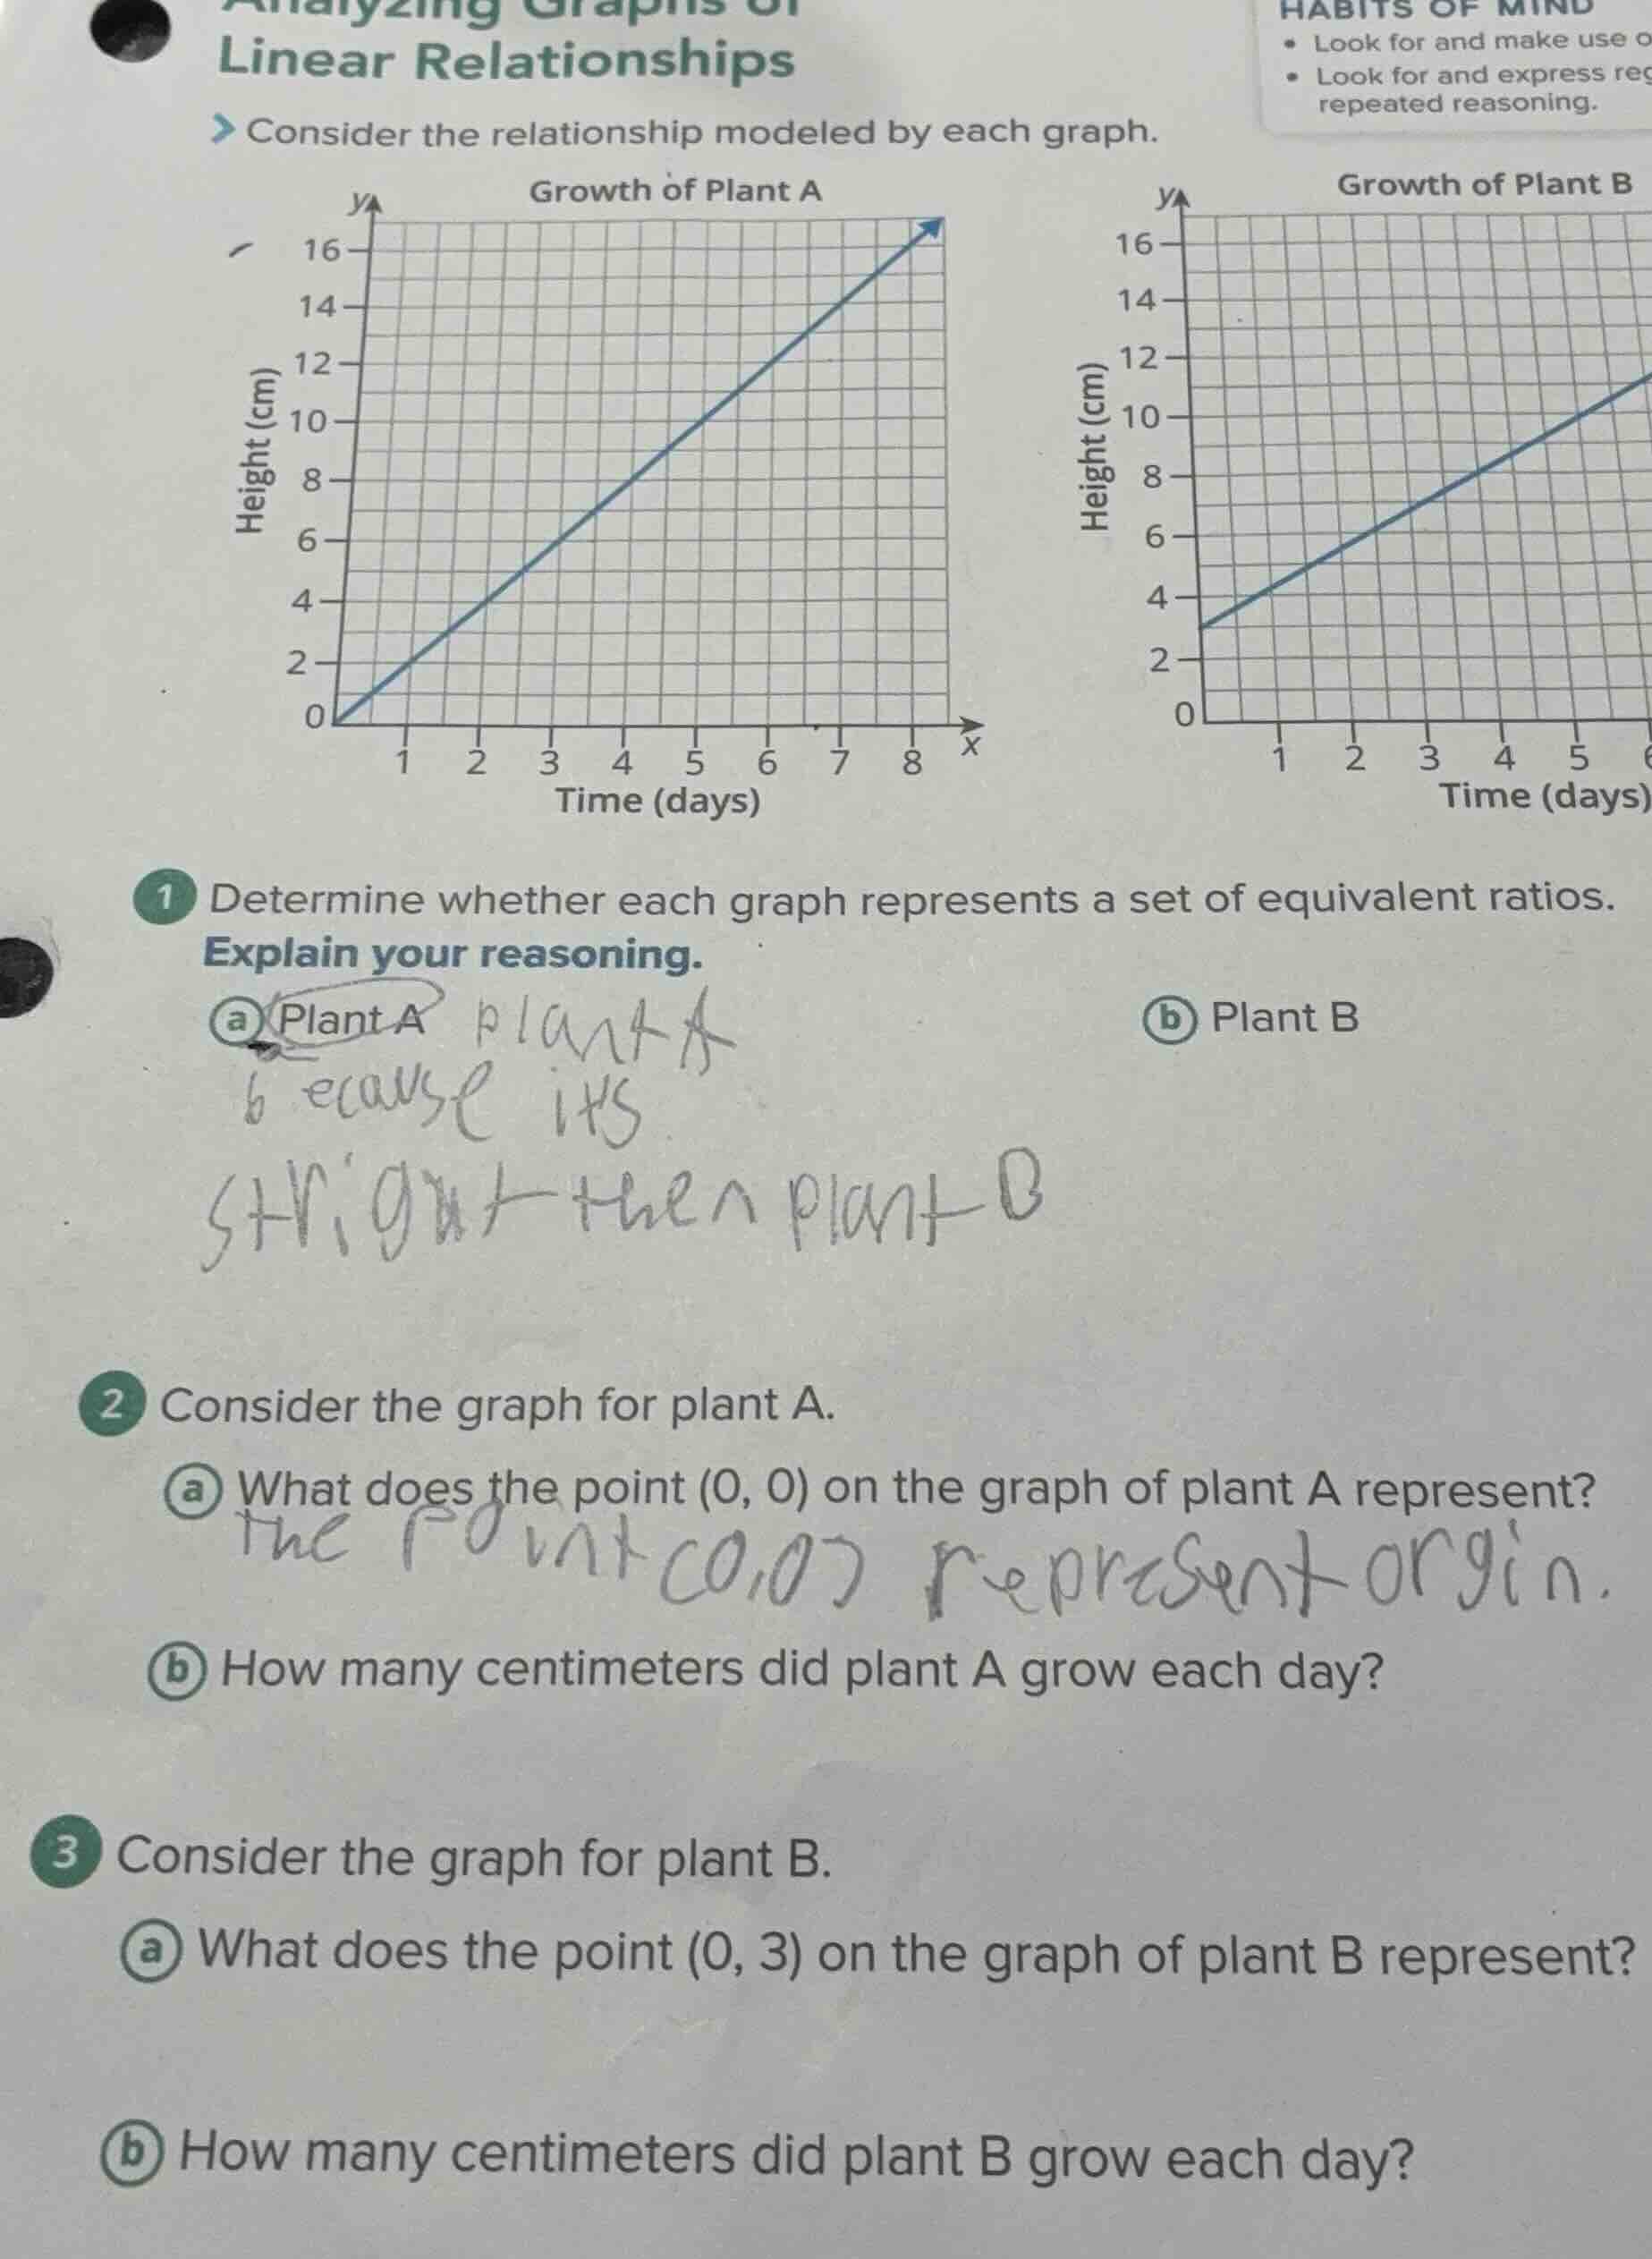 Analyzing Graphs of
Linear Relationships
HABITS OF MIND
• Look for and make use o
• Look for and express reg
repeated reasoning.
> Consider the relationship modeled by each graph.
Growth of Plant A
y
16
14
12
10
8
6
4
2
0
Height (cm)
1 2 3 4 5 6 7 8 x
Time (days)
Growth of Plant B
y
16
14
12
10
8
6
4
2
0
Height (cm)
1 2 3 4 5 6
Time (days)
1 Determine whether each graph represents a set of equivalent ratios.
Explain your reasoning.
a Plant A plant A
because its
stright then plant B
b Plant B
2 Consider the graph for plant A.
a What does the point (0, 0) on the graph of plant A represent?
the point (0,0) represent orgin.
b How many centimeters did plant A grow each day?
3 Consider the graph for plant B.
a What does the point (0, 3) on the graph of plant B represent?
b How many centimeters did plant B grow each day?